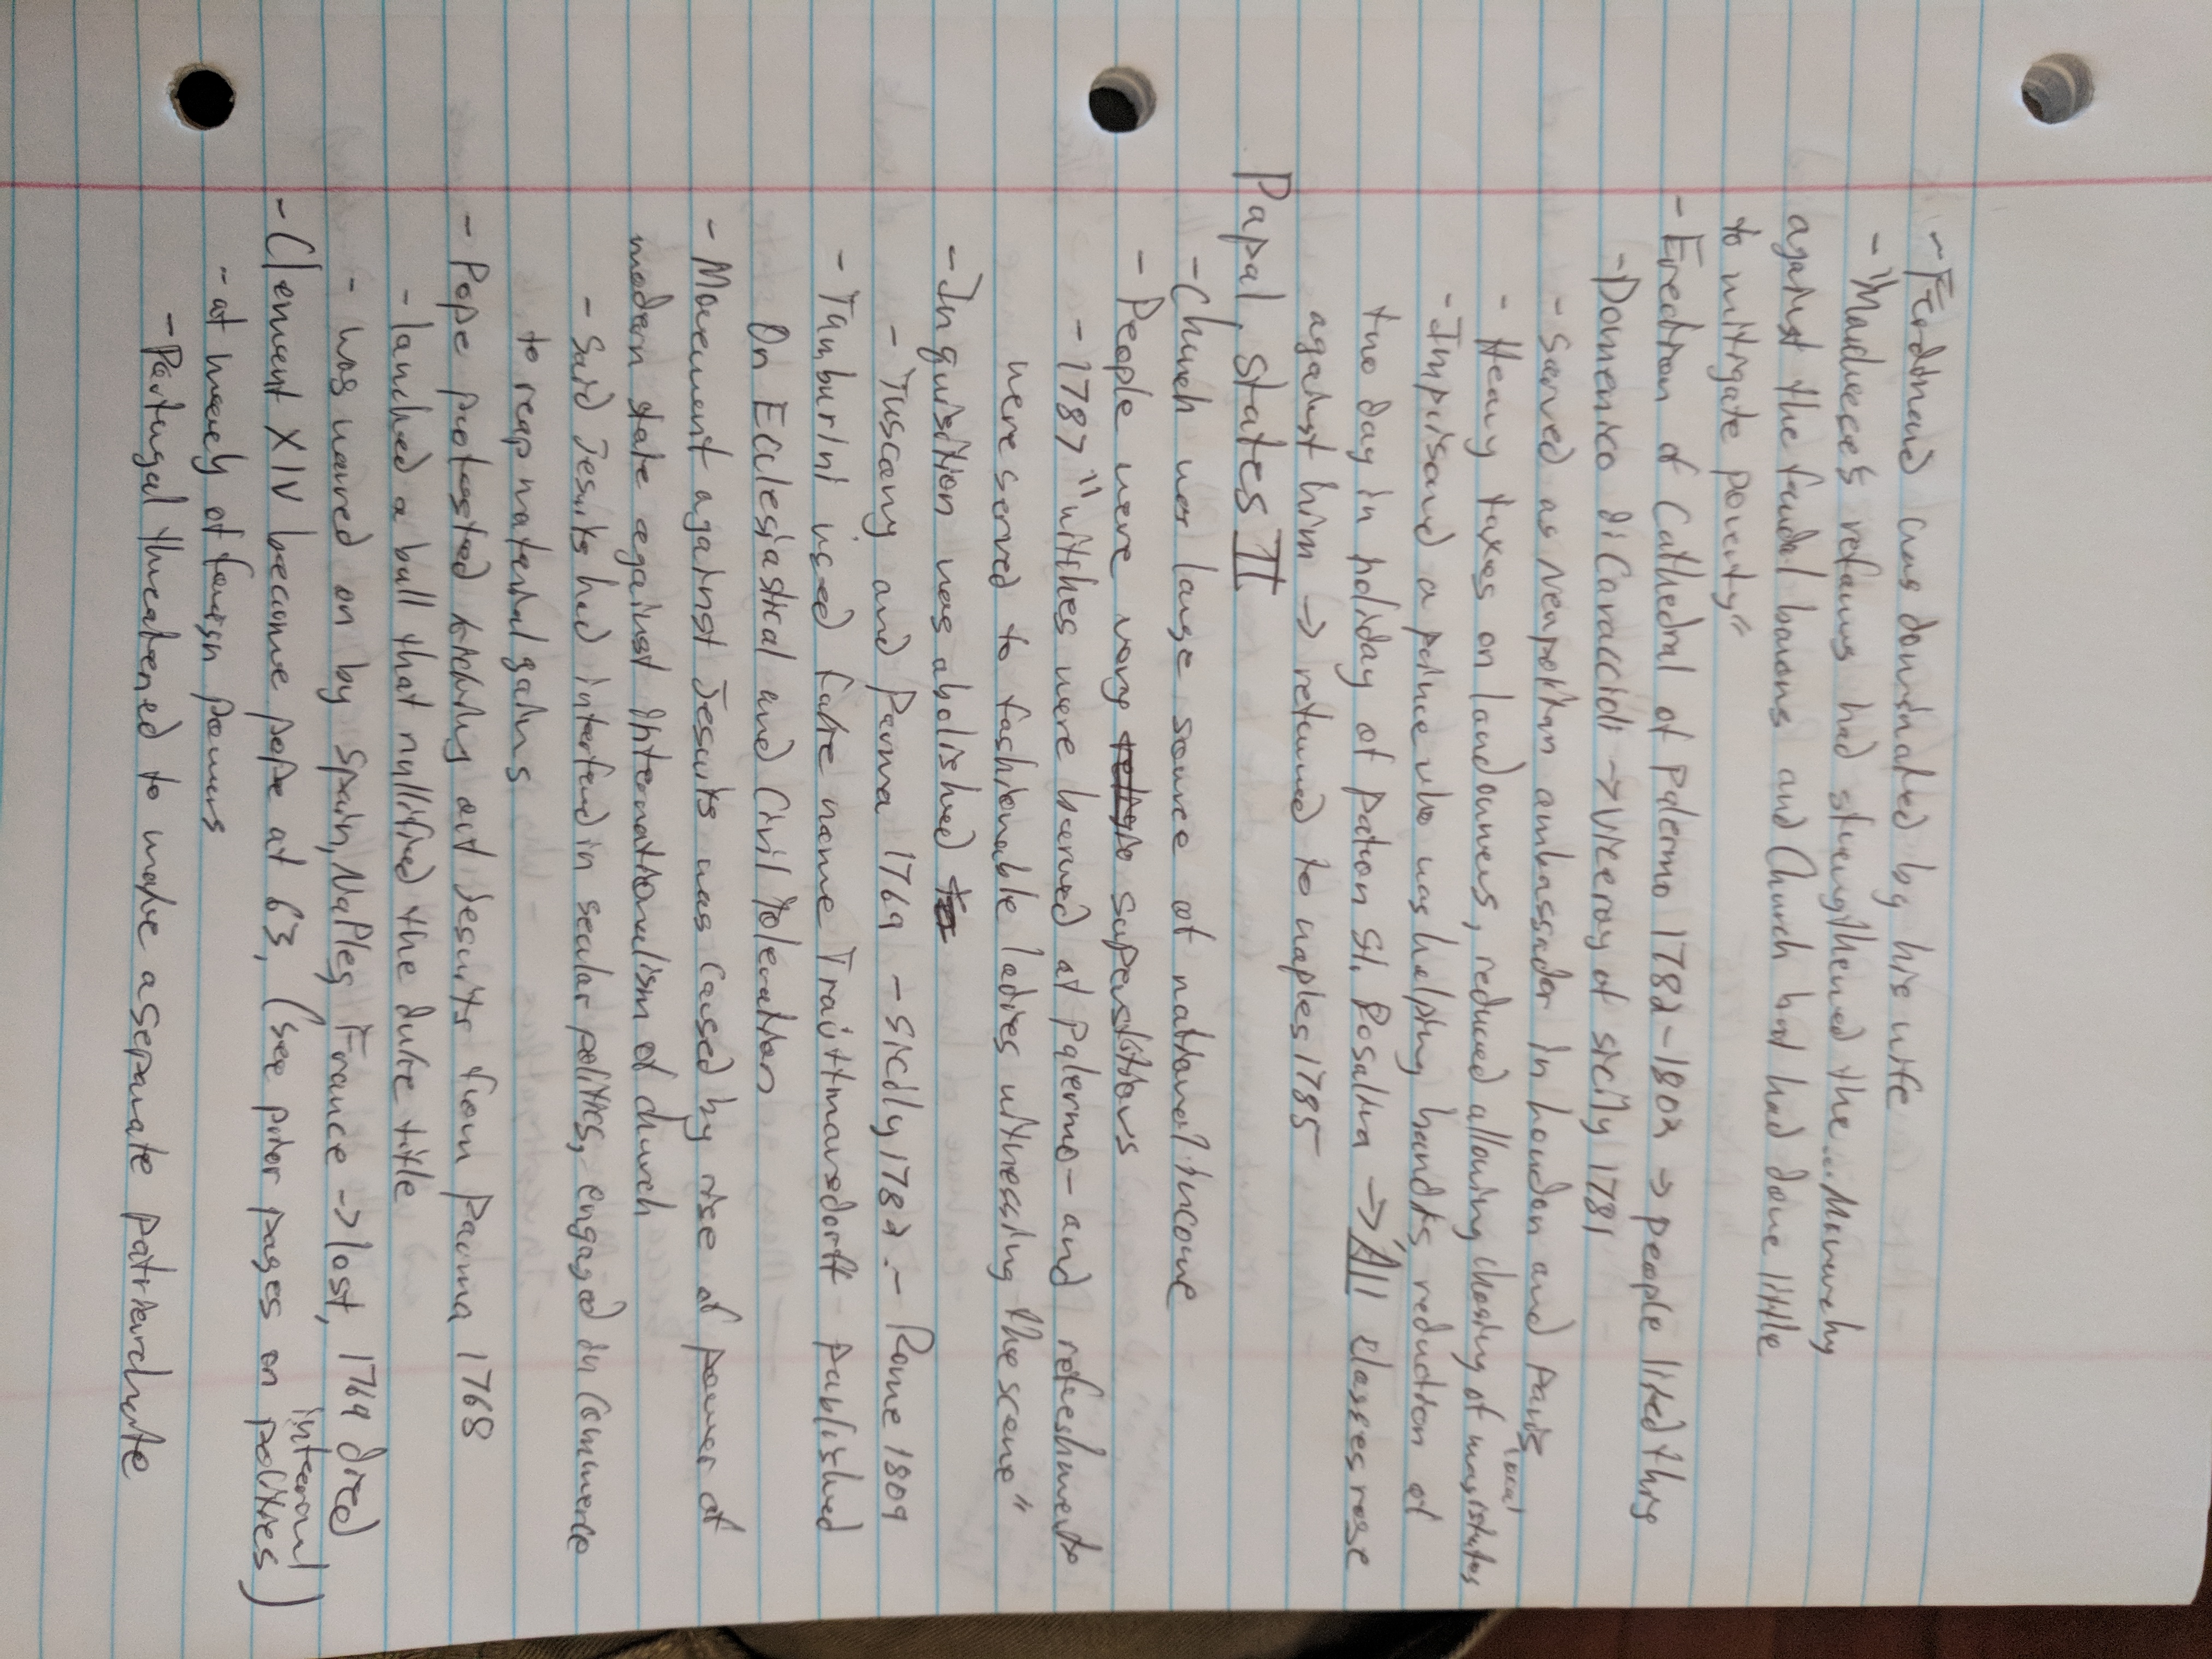 - Ferdinand was dominated by his wife
- "Maduece's refoums had strengthened the... Monarchy
against the feudal barons and Church but had done little
to mitigate poverty"
- Erection of Cathedral of Palermo 1782-1802 → people liked this
- Domenico di Caraccioli → Viceroy of sicily 1781
- served as Neapolitan ambassador in London and Paris
- Heavy taxes on landowners, reduced allowing choosing of local magistrates
- Imprisoned a prince who was helping bandits reduction of
two day in holiday of patron St. Rosalia → All classes rose
against him → returned to naples 1785
Papal States II
- Church was large source of national income
- People were very superstitious
- 1787 "witches were burned at Palermo - and refreshments
were served to fashionable ladies witnessing the scene"
- Inquisition was abolished
- Tuscany and Parma 1769 - Sicily 1782 - Rome 1809
- Tamburini used fake name Trauttmansdorff - published
On Ecclesiastical and Civil Toleration
- Movement against Jesuits was caused by rise of power of
modern state against internationalism of church
- Said Jesuits had interfered in secular politics, engaged in commerce
to reap material gains
- Pope protested kicking out Jesuits from Parma 1768
- launched a bull that nullified the duke title
- was warred on by Spain, Naples France → lost, 1769 died
- Clement XIV become pope at 63, (see prior pages on internal politics)
- at mercy of foreign powers
- Portugal threatened to make a separate patriarchate